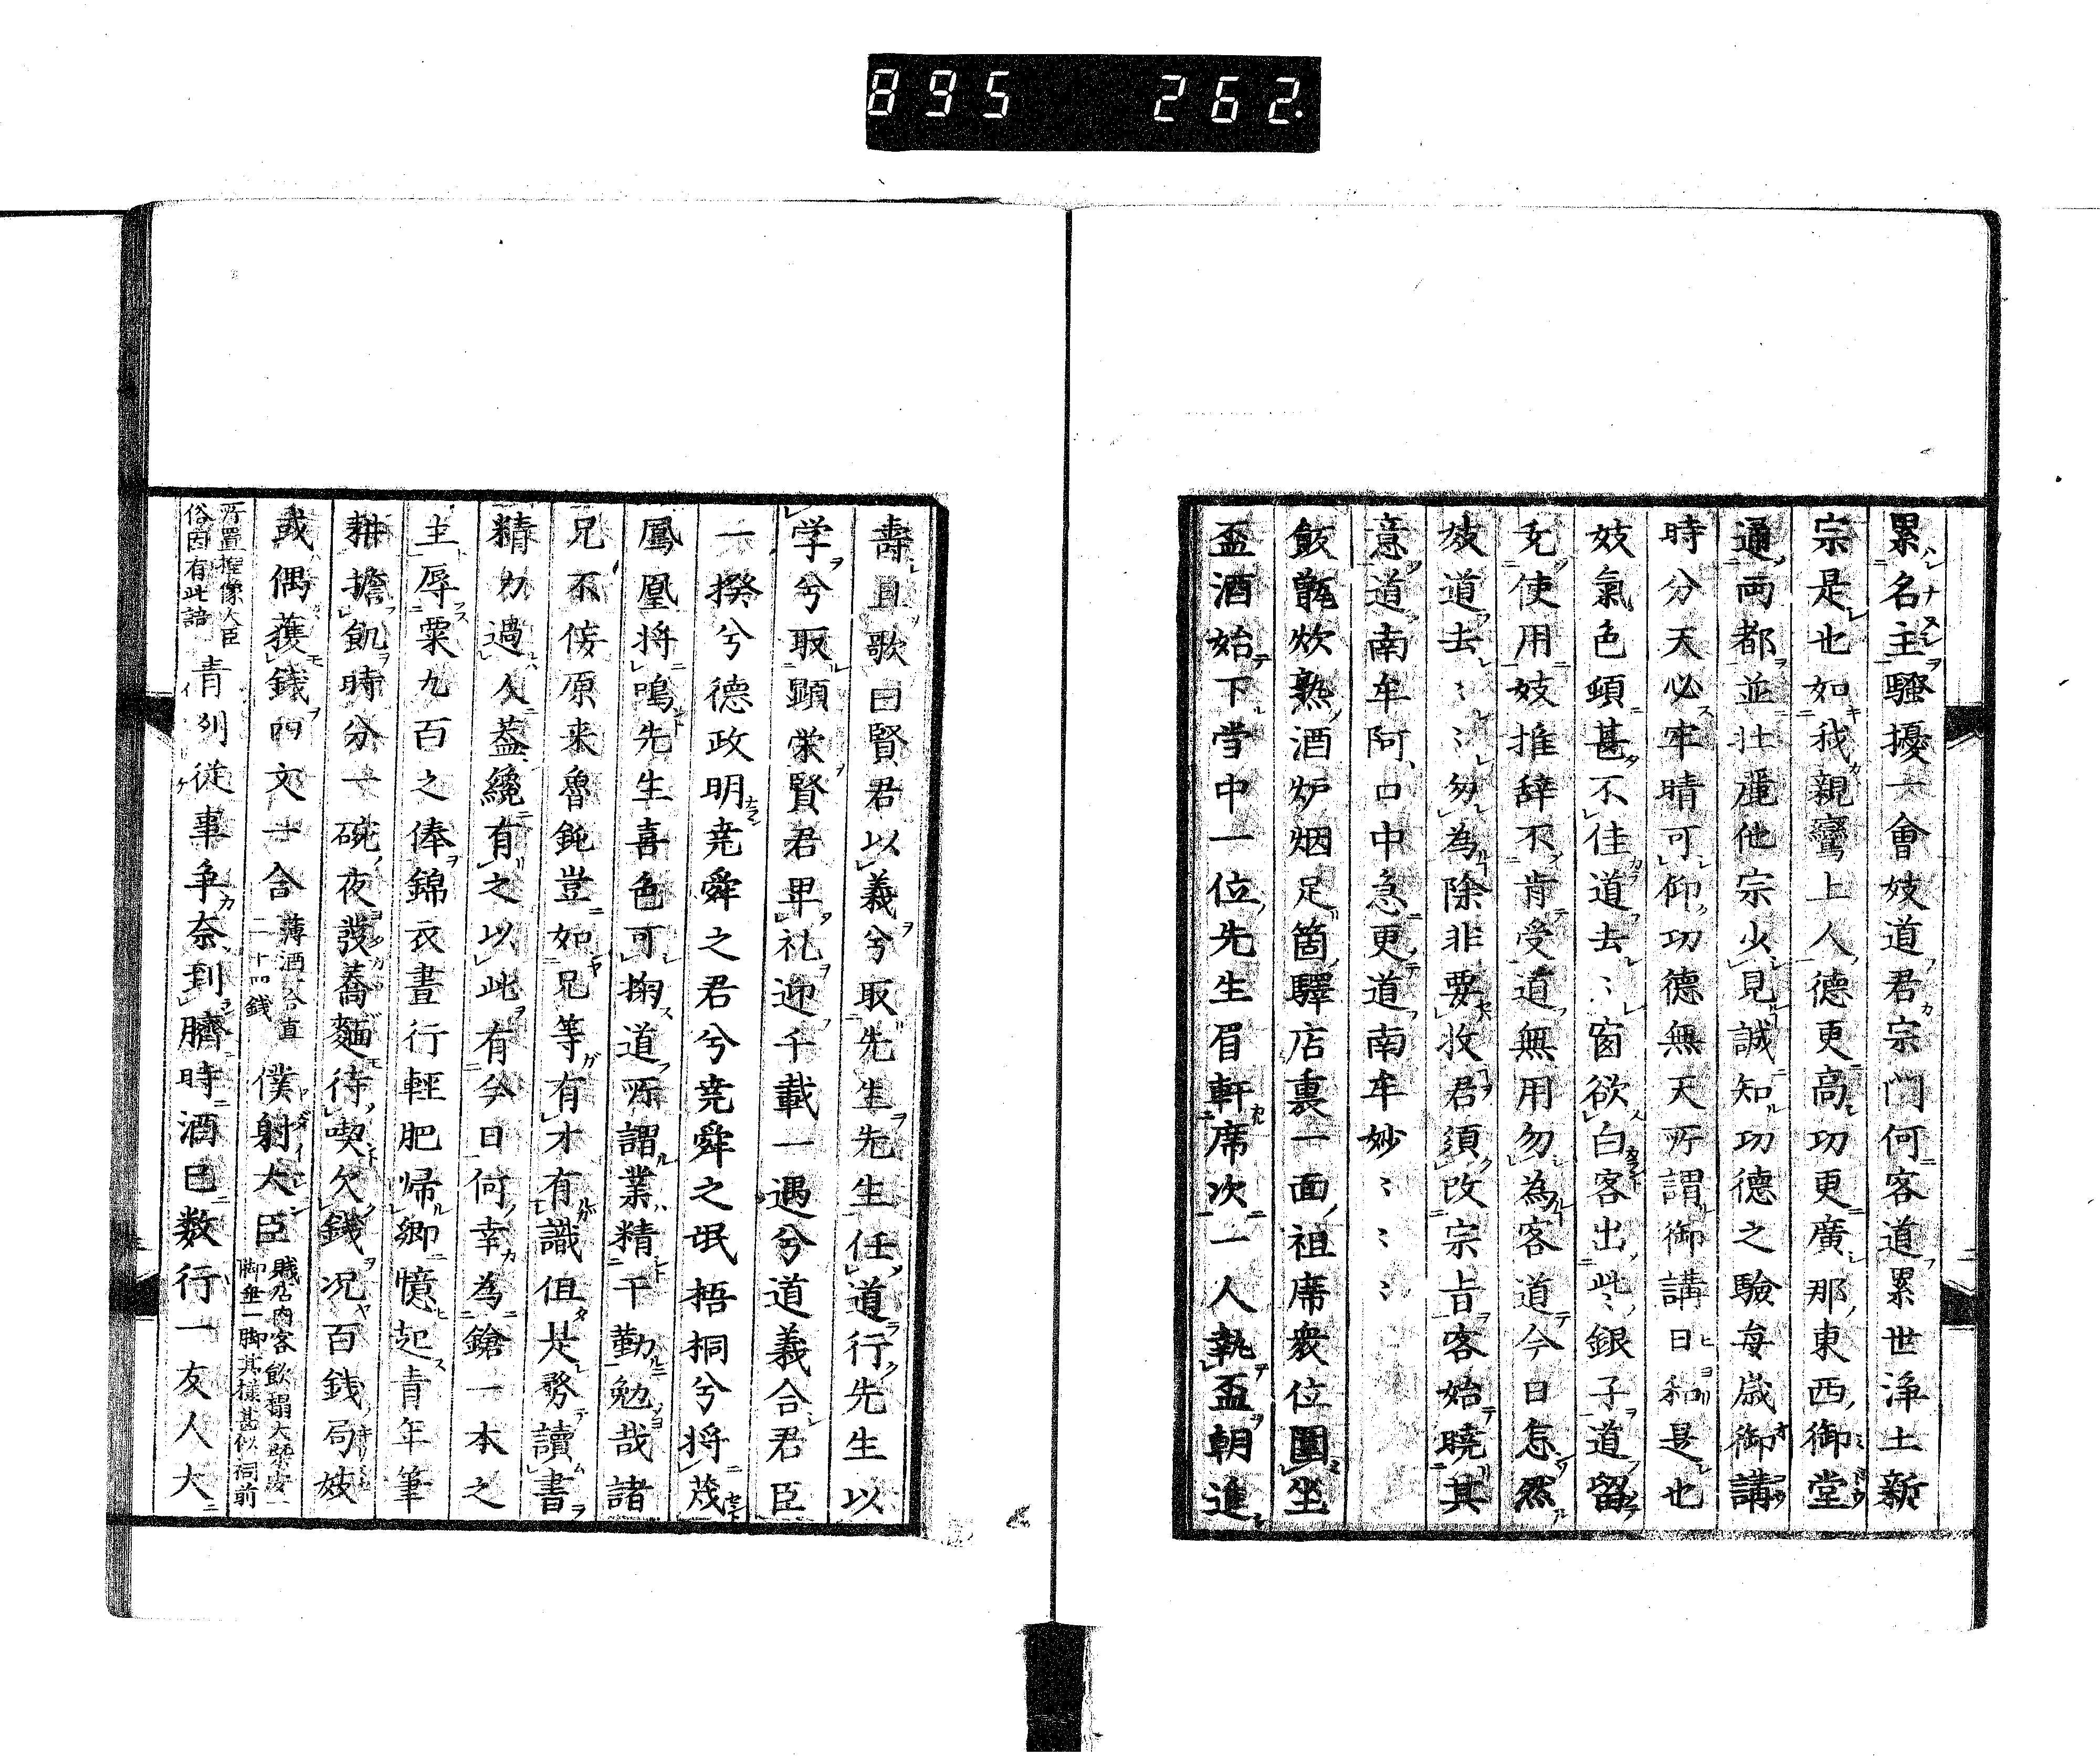 895 262.
累名主騷擾一會妓道君宗門何客道累世浄土新
宗是也如我親鸞上人德更高功更廣那東西御堂
通両都並壮麗他宗少見誠知功德之驗每歲御講
時分天必牢晴可仰功德無天所謂御講日和是也
妓氣色頓甚不佳道去〻窗欲白客出些〻銀子道留
使用妓推辞不肯受道無用勿為客道今日怎然
妓道去〻〻勿為除非要收君須改宗旨客始曉其
意道南牟阿口中急更道南牟妙〻〻〻
飯甑炊熟酒炉烟足箇驛店裏一面祖席衆位圍坐
盃酒始下当中一位先生眉軒席次一人執盃朝進
壽且歌曰賢君以義兮取先生先生任道行先生以
学兮取顕栄賢君卑礼迎千載一遇兮道義合君臣
一揆兮德政明堯舜之君兮堯舜之氓梧桐兮将茂
鳳凰将鳴先生喜色可掬道所謂業精于勤勉哉諸
兄不佞原来魯鈍豈如兄等有才有識但是務讀書
精力過人蓋纔有之以此有今日何幸為鎗一本之
主辱粟九百之俸錦衣晝行輕肥帰郷憶起青年筆
耕擔飢時分一碗夜發蕎麵待喫欠錢况百銭局妓
或偶獲銭四文一合薄酒一合直二十四錢僕射大臣賎店内客飲榻大槩安一脚垂一脚其様甚似祠前
所置桯像大臣俗因有此語青列従事争奈到臍時酒已数行一友人大